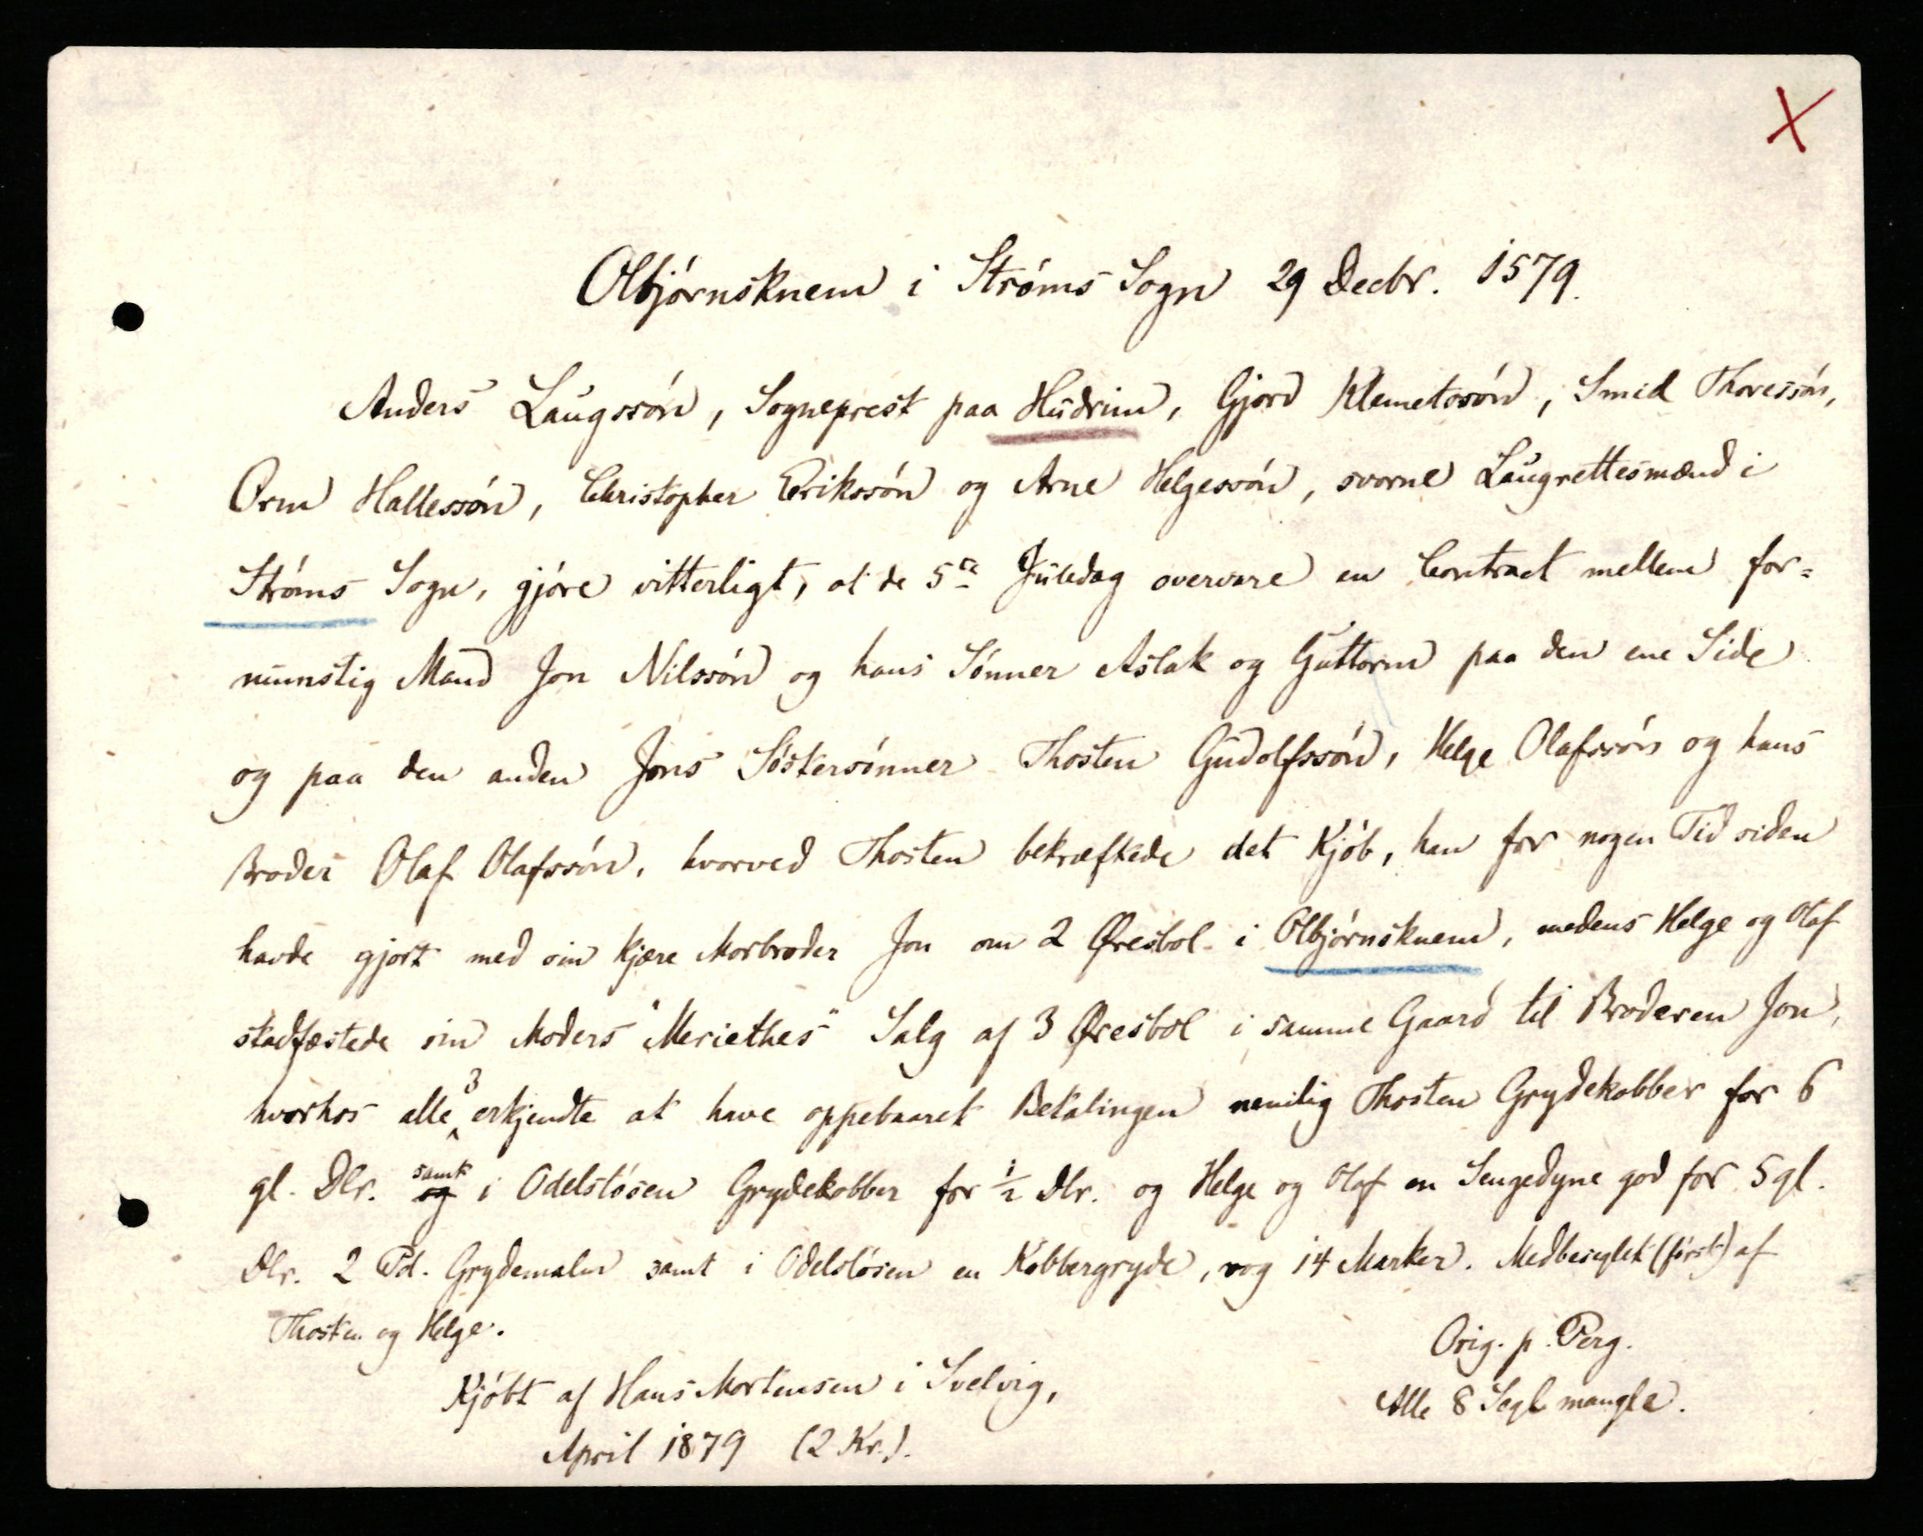 X
Olbjórnsknem i Stróms Sogn 29 Decbr. 1579.
Anders Laugssón, Sogneprest paa Hudrim, Gjord Klemetssón, Smid Thoressón,
Orm Hallessón, Christopher Erikssón og Arne Helgessón, svorne Laugrettesmænd i
Stróms Sogn, gjóre vitterligt, at de 5te Juledag overvare en Contract mellem for=
numstig Mand Jon Nilssón og hans Sónner Aslak og Guttorm paa den ene Side
og paa den anden Jons Sóstersónner Thosten Gudolfssón, Helge Olafssón og hans
Broder Olaf Olafssón, hvorved Thosten bekræftede det Kjób, han for nogen Tid siden
havde gjort med sin kjære Morbroder Jon om 2 Øresbol i Olbjórnsknem, medens Helge og Olaf
stadfæstede sin Moders "Meriethes" Salg af 3 Øresbol i samme Gaard til Broderen Jon,
hvorhos alle 3 erkjendte at have oppebaaret Betalingen nemlig Thosten Grydekobber for 6
gl. Dlr. samt i Odelslósen Grydekobber for 1/2 Dlr. og Helge og Olaf en Sengedyne god for 5 gl.
Dlr. 2 Pd. Grydemalm samt i Odelslósen en Kobbergryde, vog 14 Marker. Medbeseglet (fórst) af
Thosten og Helge.
Orig. p. Perg.
Kjóbt af Hans Mortensen i Svelvig,
Alle 8 Segl mangle.
April 1879 (2 Kr.).